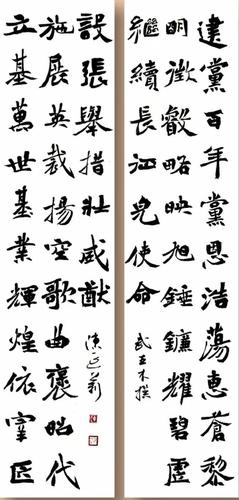 建黨百年黨恩浩蕩惠蒼黎
明徵叡略映旭錘鐮耀碧虛
繼續長使命
立基萬世基業輝煌依宰匠
施展英裁揚空歌曲褒昭代
設張舉措壯威猷